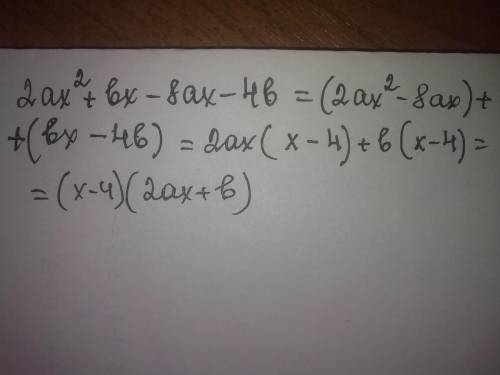 2ax² + bx - 8ax - 4b = (2ax² - 8ax) +
+ (bx - 4b) = 2ax ( x - 4) + b (x - 4) =
= (x - 4) (2ax + b)